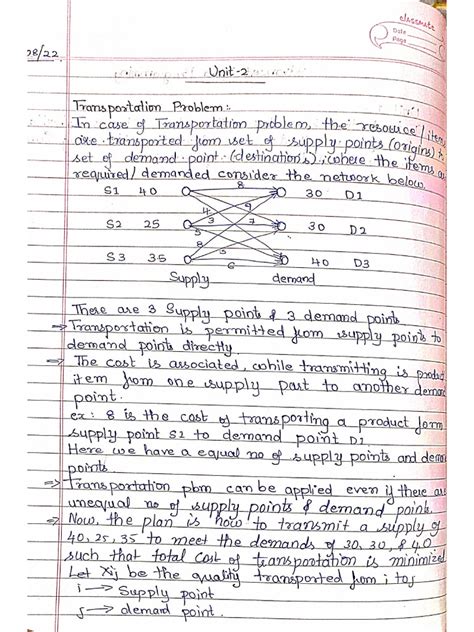 classmate
Date
Page
28/22
Unit-2
Transportation Problem:
In case of Transportation problem, the resource/items
are transported from set of supply points (origins) to
set of demand point (destinations), where the items are
required/demanded consider the network below.
S1 40 8 30 D1
4 9
S2 25 3 7 30 D2
5
8 5
S3 35 6 40 D3
Supply demand
There are 3 Supply points & 3 demand points
⇒ Transportation is permitted from supply points to
demand points directly
⇒ The cost is associated, while transmitting is product
item from one supply part to another demand
point.
ex: 8 is the cost of transporting a product form
supply point S2 to demand point D1.
Here we have a equal no of supply points and demand
points.
⇒ Transportation pbm can be applied even if there are
unequal no of supply points & demand points.
⇒ Now, the plan is how to transmit a supply of
40, 25, 35 to meet the demands of 30, 30, & 40
such that total cost of transportation is minimized
Let Xij be the quality transported from i to j
i → Supply point
j → demand point.